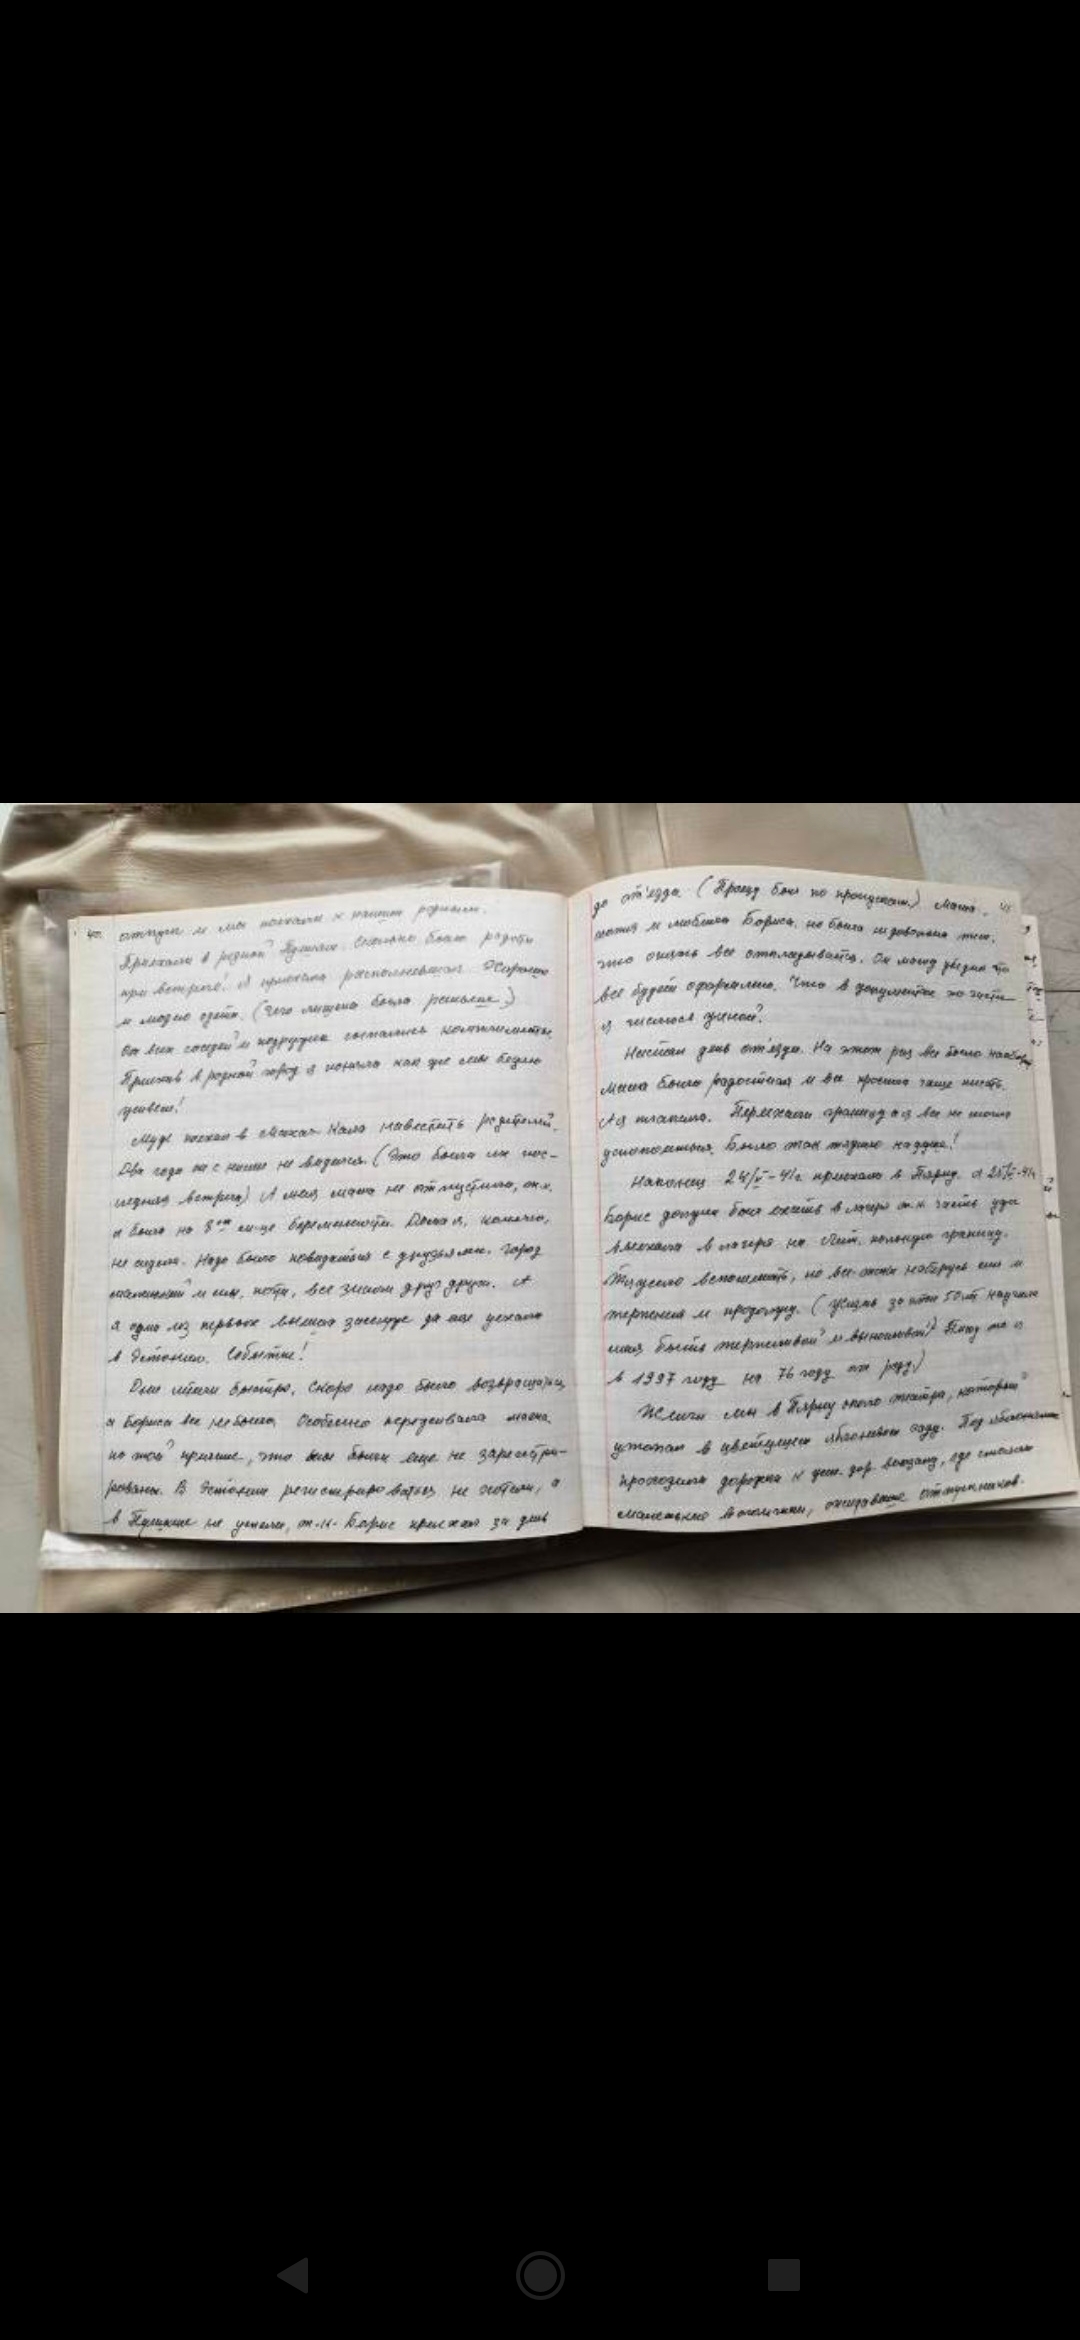 40.
отпуск и мы поехали к нашим родным.
Приехали в родной Пушкин. Сколько было радости
при встрече! Я приехала располневшая. Хорошо
и модно одета. (Чего лишена была раньше.)
От всех соседей и подружек сыпались комплименты.
Приехав в родной город я поняла как же мы бедно
живем!
Муж поехал в Махач-Кала навестить родителей.
Два года он с ними не виделся. (Это была их пос-
ледняя встреча) А меня мама не отпустила, т.к.
я была на 8ом м-це беременности. Дома я, конечно,
не сидела. Надо было повидаться с друзьями. Город
маленький и мы, почти, все знали друг друга. А
я одна из первых вышла замуж да еще уехала
в Эстонию. Событие!
Дни шли быстро, скоро надо было возвращаться,
а Бориса все не было. Особенно переживала мама
по той причине, что мы были еще не зарегистри-
рованы. В Эстонии регистрироваться не хотели, а
в Пушкине не успели, т.к. Борис приехал за день
41
до от'езда. (Проезд был по пропускам.) Мама,
хотя и любила Бориса, но была недовольна тем,
что опять все откладывается. Он маму убедил что
все будет оформлено. Что в документах по части
я числюся женой.
Настал день от'езда. На этот раз все было наоборот
мама была радостная и все просила чаще писать.
А я плакала. Переехали границу а я все не могла
успокоиться. Было так тяжело на душе!
Наконец 24/V-41г приехали в Пярну. А 25/V-41г
Борис должен был ехать в лагеря т.к. часть уже
выехала в лагеря на границу.
Тяжело вспоминать, но все-таки наберусь сил и
терпения и продолжу. (Жизнь за эти 50 лет научила
меня быть терпеливой и выносливой) Пишу то я
в 1997 году на 76 году от роду)
Жили мы в Пярну около театра, который
утопал в цветущем яблоневом саду. Под яблонями
проходила дорожка к жел. дор. вокзалу, где стояли
маленькие вагончики, ожидавшие отпускников.